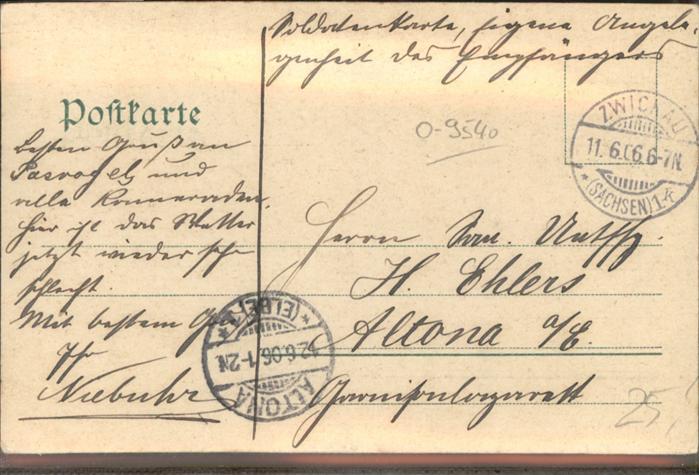 Soldatenkarte, Eigene Angele-
genheit des Empfängers
Postkarte
O-9540
ZWICKAU
11.6.06.6-7N.
*(SACHSEN)1*
besten Gruß an
und
alle Kameraden.
hier ist das Wetter
jetzt wieder sehr
schlecht.
Mit bestem
Ihr
Niebuhr
Herrn San. Untffz.
H. Ehlers
Altona a/E.
Garnisonlazarett
ALTONA
12.6.06.1-2N.
*(ELBE)
25,